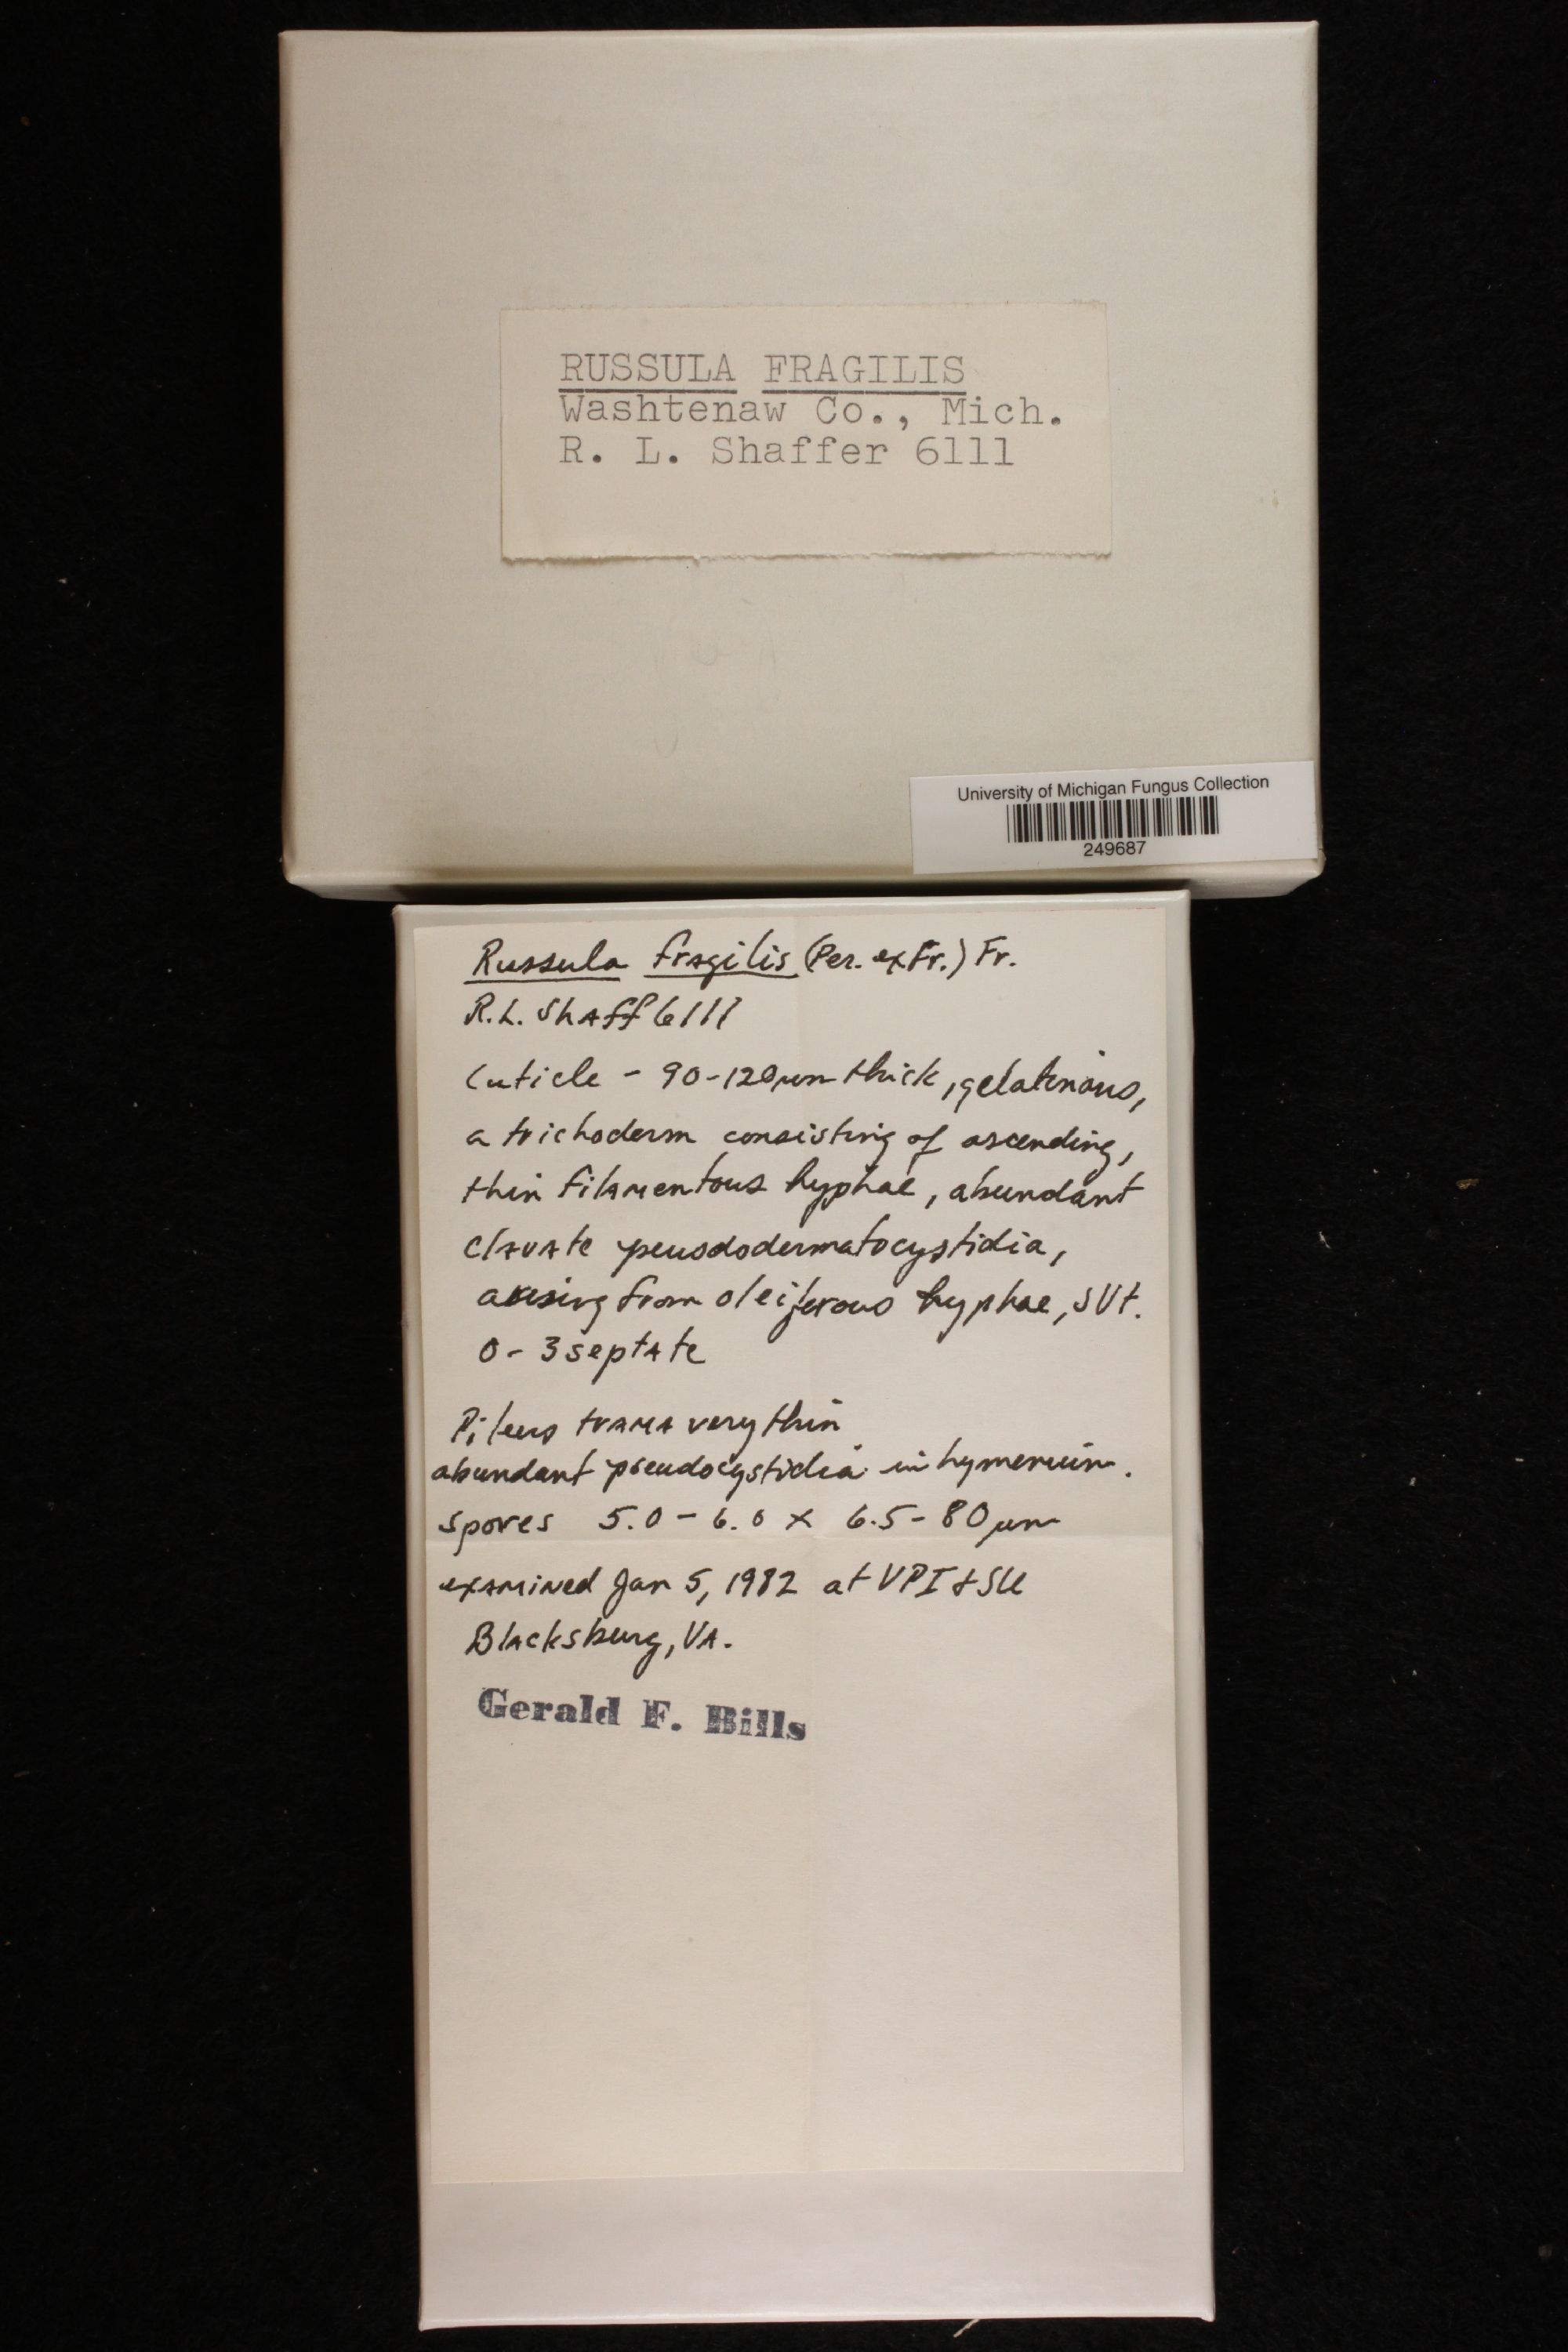 RUSSULA FRAGILIS
Washtenaw Co., Mich.
R. L. Shaffer 6111
University of Michigan Fungus Collection
249687
Russula fragilis (Per. ex Fr.) Fr.
R.L. Shaff 6111
Cuticle - 90-120 µm thick, gelatinous,
a trichoderm consisting of ascending,
thin filamentous hyphae, abundant
clavate peusdodermatocystidia,
arising from oleiferous hyphae, SV+.
0-3 septate
Pileus trama very thin
abundant pseudocystidia in hymenium.
spores 5.0-6.0 x 6.5-80 µm
examined Jan 5, 1982 at VPI & SU
Blacksburg, VA.
Gerald F. Bills